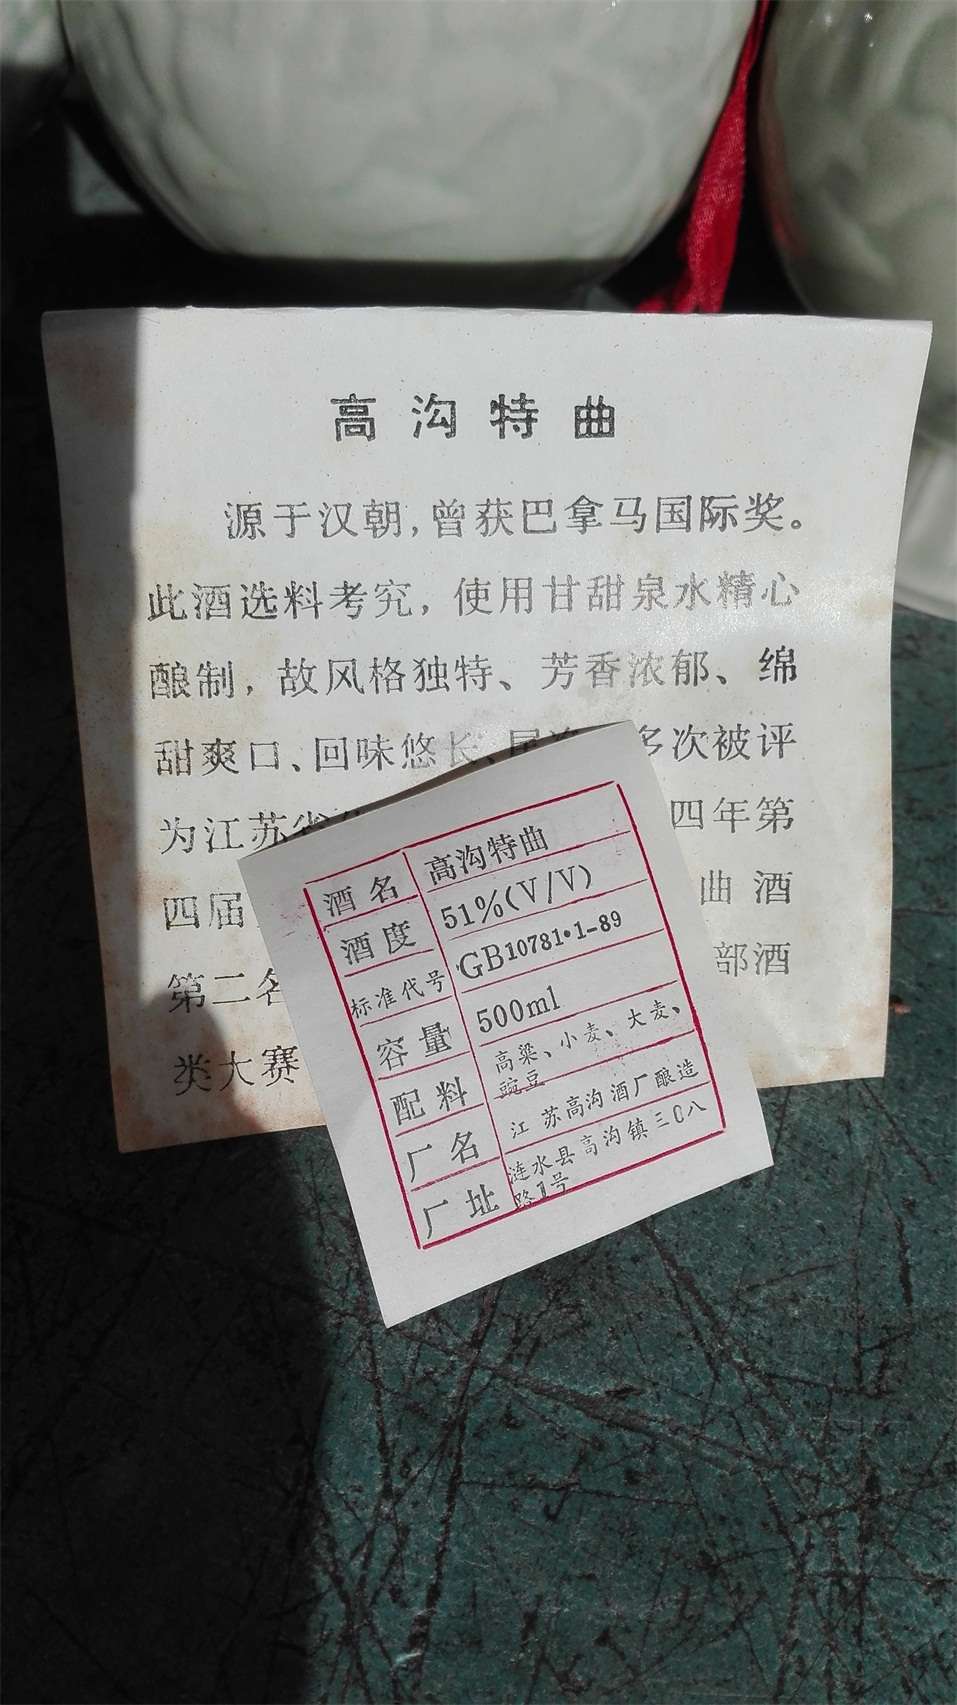 高沟特曲
源于汉朝,曾获巴拿马国际奖。
此酒选料考究,使用甘甜泉水精心
酿制,故风格独特、芳香浓郁、绵
甜爽口、回味悠长、 多次被评
为江苏省 四年第
四届 曲酒
第二名 部酒
类大赛
酒名 高沟特曲
酒度 51%(V/V)
标准代号 GB10781•1-89
容量 500ml
配料 高粱、小麦、大麦、
豌豆
厂名 江苏高沟酒厂酿造
厂址 涟水县高沟镇三〇八
路1号